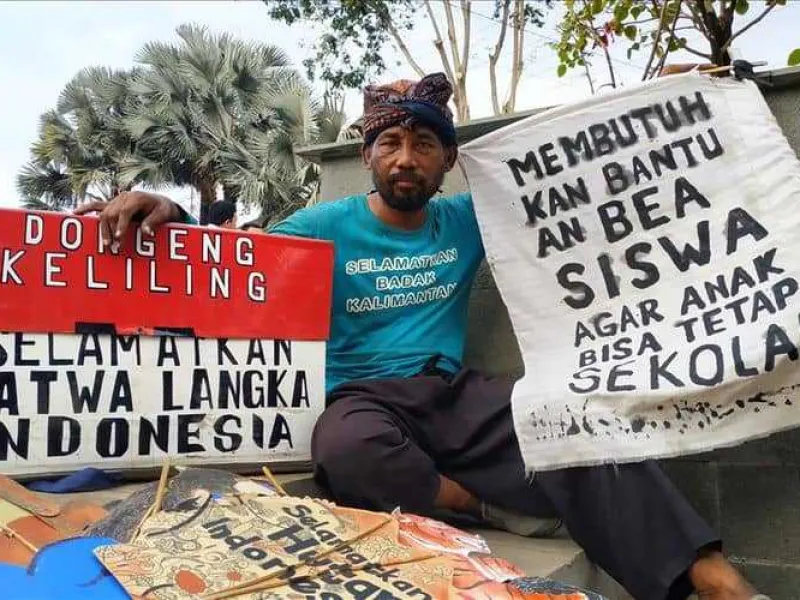 DONGENG
KELILING
SELAMATKAN
SATWA LANGKA
INDONESIA
SELAMATKAN
BADAK
KALIMANTAN
MEMBUTUH
KAN BANTU
AN BEA
SISWA
AGAR ANAK
BISA TETAP
SEKOLA
Selamatkan
Hutan
Indonesia